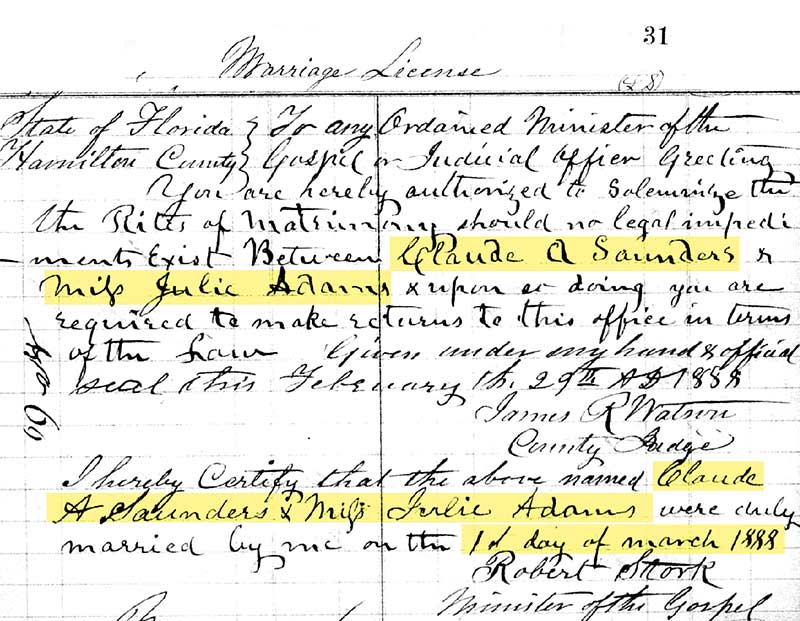 31
Marriage License
(48)
State of Florida } To any Ordained Minister of the
Hamilton County } Gospel or Judicial officer Greeting
You are hereby authorized to Solemnize the
the Rites of Matrimony should no legal impedi
ments Exist Between Claude A Saunders &
Miss Julie Adams & upon so doing you are
required to make returns to this office in terms
of the Law Given under my hand & official
seal this February th. 29th AD 1888
James R Watson
County Judge
No 60
I hereby Certify that the above named Claude
A Saunders & Miss Julie Adams were duly
married by me on the 1st day of march 1888
Robert Stork
Minister of the Gospel